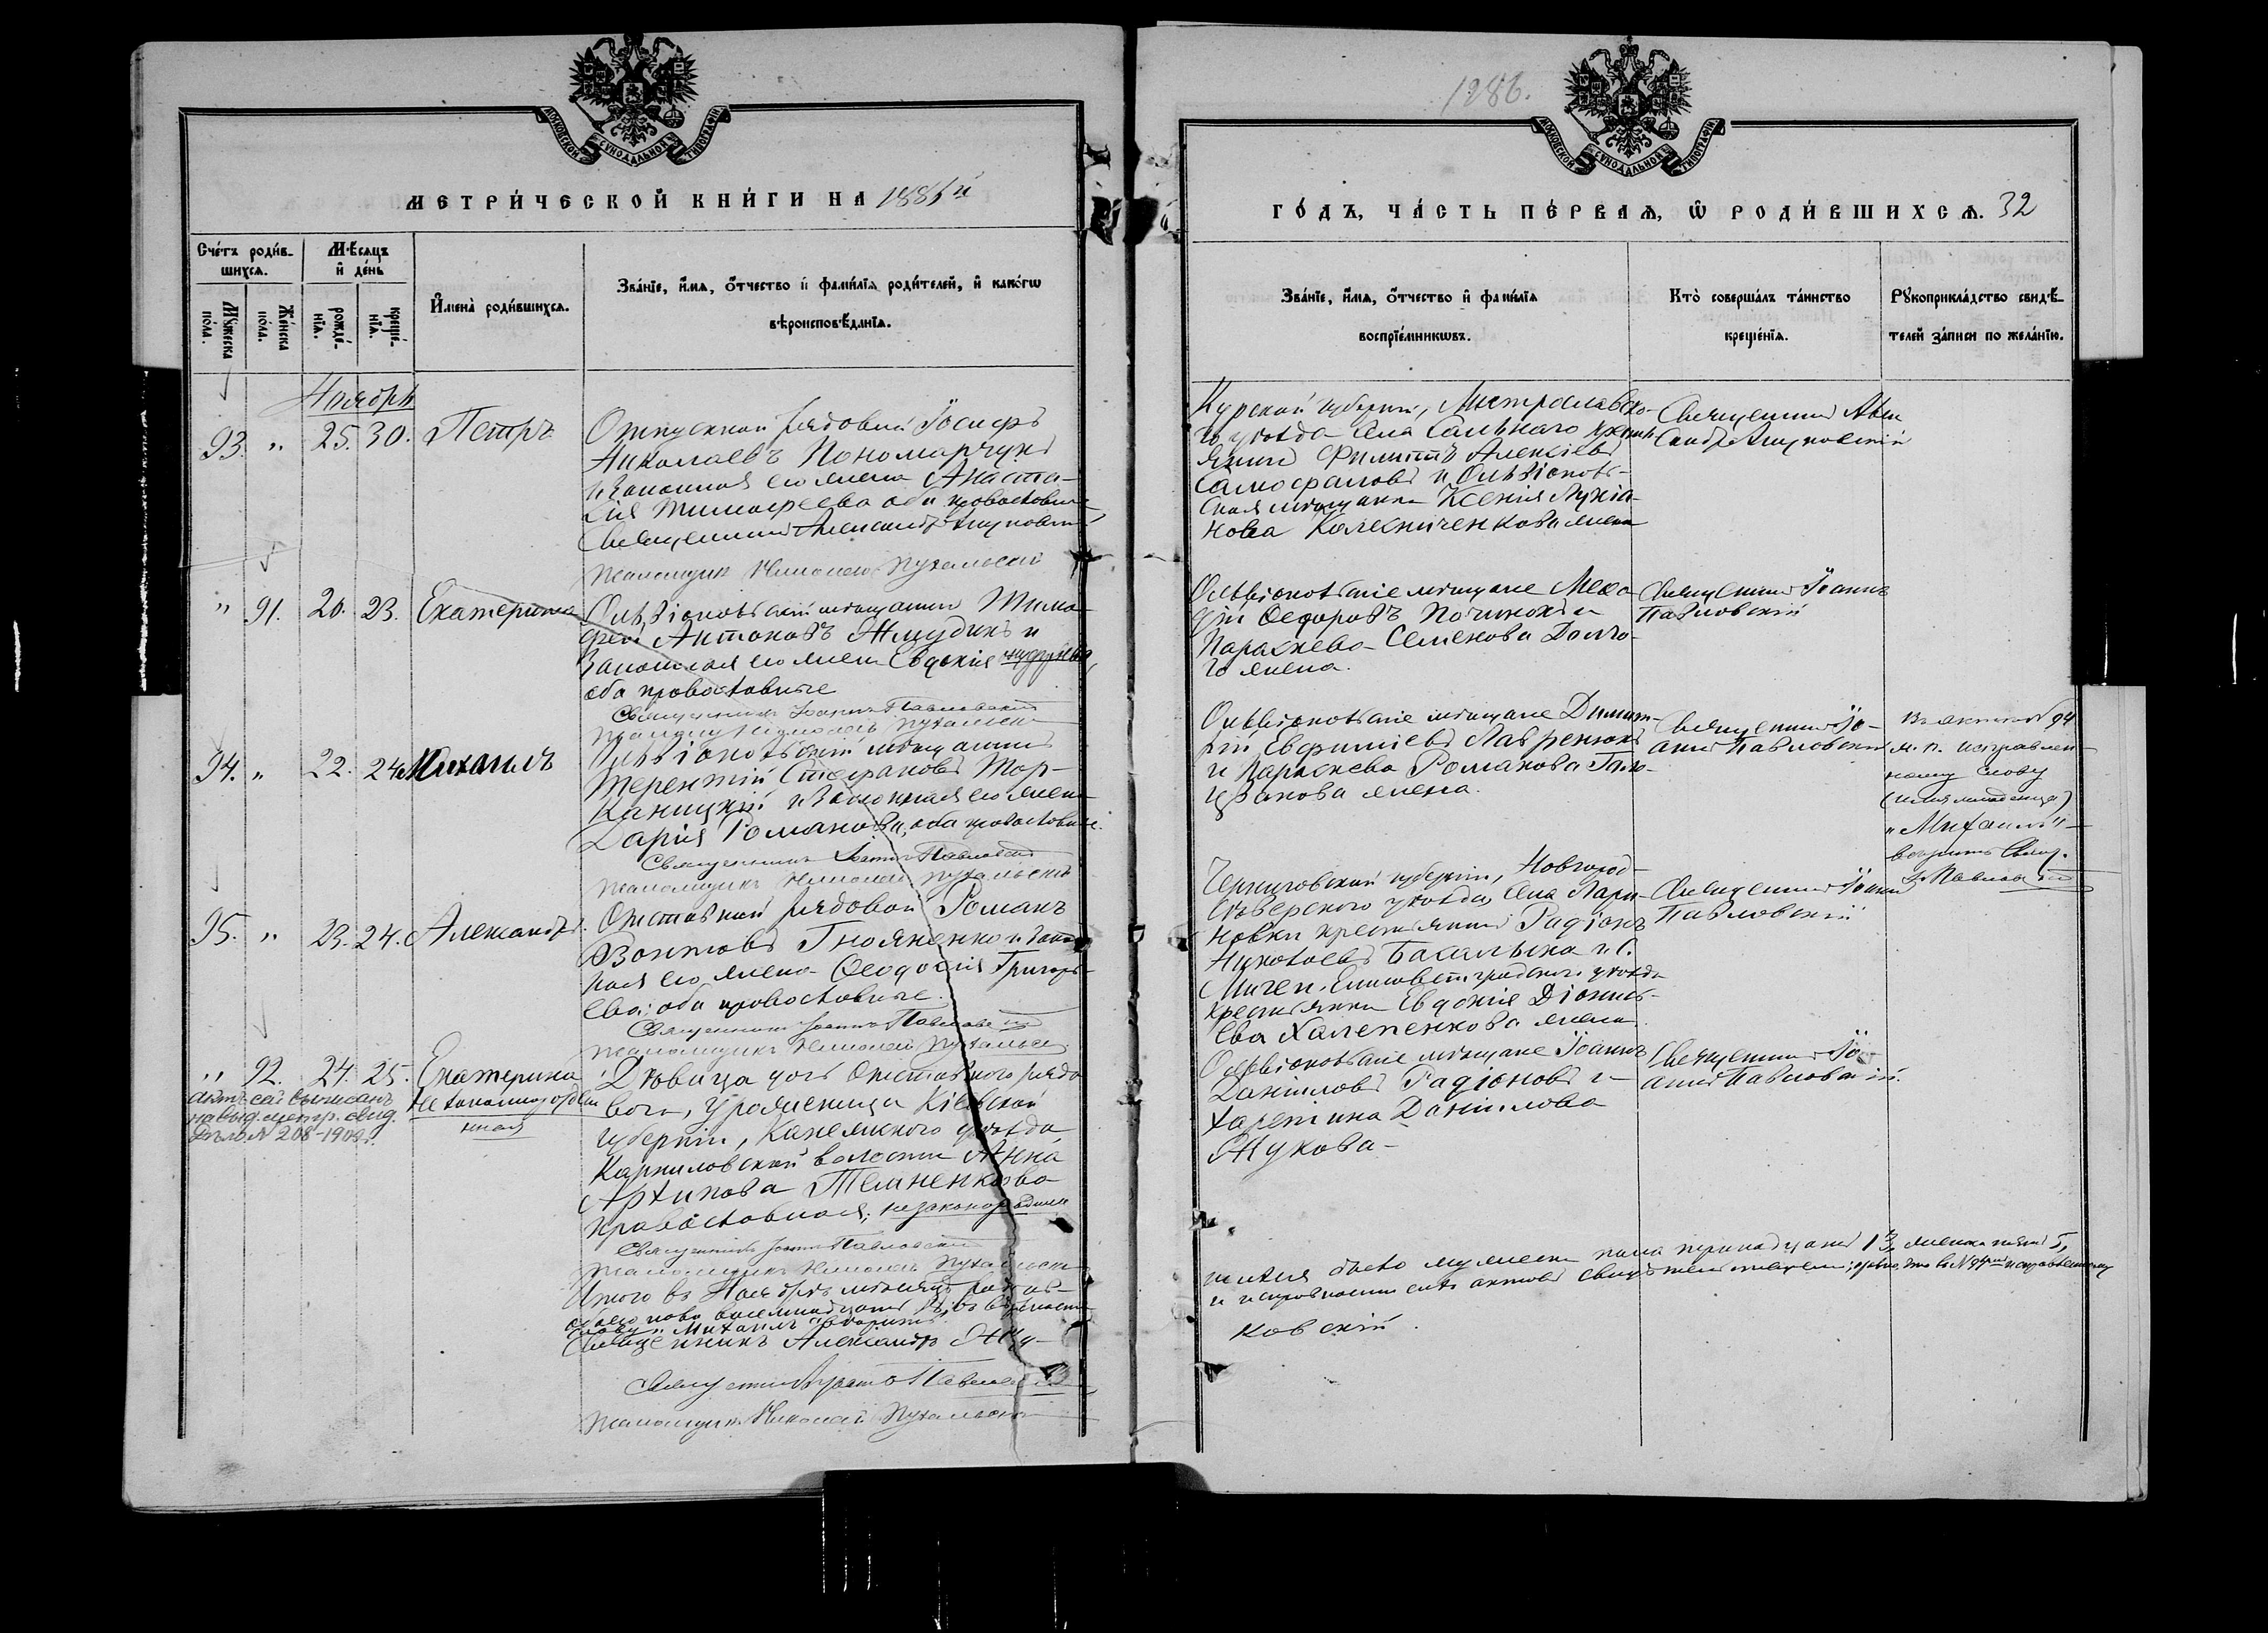 МОСКОВСКОЙ СѴНОДАЛЬНОЙ ТИПОГРАФІИ
МЕТРИ́ЧЕСКОЙ КНИ́ГИ НА 1886й
Сче́тъ роди́в-
шихсѧ.
Мѣ́сѧцъ
и҆ де́нь
Мꙋ́жеска по́ла.
Же́нска по́ла.
рожде́-нїѧ.
креще́-нїѧ.
И҆мена̀ роди́вшихсѧ.
Зва́нїе, и҆́мѧ, ѻ҆́тчество и҆ фами́лїѧ роди́телей, и҆ како́гѡ
вѣроисповѣ́данїѧ.
Ноябрь
93. " 25. 30. Петръ
Отпускной рядовой Іосифъ
Николаевъ Пономарчукъ
и законная его жена Анаста-
сія Тимофеева оба православные
Священникъ Александръ
Псаломщик Николай Пухальскій
" 91. 20. 23. Екатерина
Ольвіопольскій мѣщанинъ Тимо-
фей Антоновъ Жмудикъ и
Законная его жена Евдокія
оба православные
Священникъ Іоаннъ Павловскій
Псаломщик Николай Пухальскій
94. " 22. 24. Михаилъ
Ольвіопольскій мѣщанинъ
Терентій Стефановъ Тор-
каницкій и законная его жена
Дарія Романова, оба православные.
Священникъ Іоаннъ Павловскій
Псаломщикъ Николай Пухальскій
95. " 23. 24. Александръ.
Отставной рядовой Романъ
Гнояненко и закон-
ная его жена Ѳеодосія Григорь-
ева; оба православные.
Священникъ Іоаннъ Павловскій
Псаломщикъ Николай Пухальскій
" 92. 24. 25. Екатерина
незаконнорожден
ная
актъ сей выписанъ
на выд. метр. свид.
Дѣло N 208-1902 г.
Дѣвица дочь отставного рядо
вого, уроженица Кіевской
губерніи, Каневского уѣзда
Карниловской волости Анна
Архипова Темненкова
православная; незаконорожден
Священникъ Іоаннъ Павловскій
Псаломщикъ Николай Пухальскій
Итого въ Ноябрѣ мѣсяцѣ родив-
слову "Михаилъ" вѣрить.
Священникъ Александръ Яцу-
Священникъ Іоаннъ Павловскій
Псаломщикъ Николай Пухальскій
1886.
МОСКОВСКОЙ СѴНОДАЛЬНОЙ ТИПОГРАФІИ
ГО́ДЪ, ЧА́СТЬ ПЕ́РВАѦ, Ѽ РОДИ́ВШИХСѦ. 32
Зва́нїе, и҆́мѧ, ѻ҆́тчество и҆ фами́лїѧ
воспрїе́мникѡвъ.
Кто̀ соверша́лъ та́инство
креще́нїѧ.
Рꙋкоприкла́дство свидѣ́-
телей за́писи по жела́нїю.
Курской губерніи,
го уѣзда села Сальнаго кресть-
янинъ Филиппъ Алексіевъ
Самофаловъ и Ольвіополь-
ская мѣщанка Ксенія Лукіа-
нова Колесниченкова жена
Священникъ Алек
сандръ Яцуковскій
Ольвіопольскіе мѣщане Меѳо-
дій Ѳедоровъ Починокъ и
Параскева Семенова Долго-
го жена.
Священникъ Іоаннъ
Павловскій
Ольвіопольскіе мѣщане Димит-
рій Евфиміевъ Лавренюкъ
и Параскева Романова
жена.
Священникъ Іо-
аннъ Павловскій
Въ актѣ N 94
м. п. исправлен-
ному слову
(имя младенца)
"Михаилъ" -
вѣрить Свящ.
І. Павловскій
Черниговской губерніи, Новгород-
сѣверского уѣзда села Лари-
новки крестьянинъ Радіонъ
Николаевъ Басалыка и с.
Мигеи, Елисаветградского уѣзда
крестьянка Евдокія Діонись-
ева Халепенкова жена
Священникъ Іоаннъ
Павловскій
Ольвіопольскіе мѣщане Іоаннъ
Даніиловъ Радіоновъ и
Харетина Даніилова
Жукова -
Священникъ Іо
аннъ Павловскій.
пола тринадцать 13, женска пять 5,
ковскій.